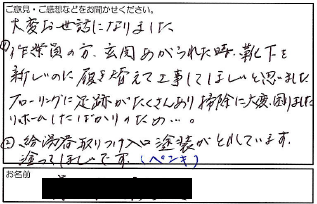 ご意見・ご感想などをお聞かせください。
大変お世話になりました
①作業員の方、玄関あがられた時、靴下を
新しいのに履き替えて工事してほしいと思いました
フローリングに足跡がたくさんあり掃除に大変困りました
リホームしたばかりのため…。
②給湯器取りつけ入口塗装がとれています。
塗ってほしいです。(ペンキ)
お名前